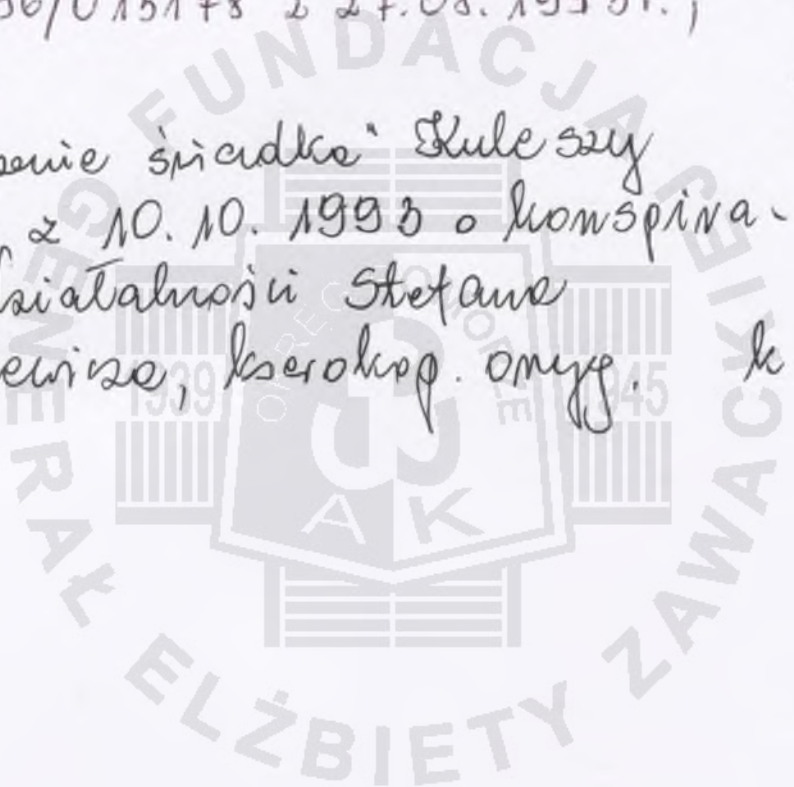 36/015178 z 27.08.1993r.,
zenie świadka" Kuleszy
z 10.10.1993 o konspira-
działalności Stefana
ewicza, kserokop. oryg. k
FUNDACJA
GENERAŁ ELŻBIETY ZAWACKIEJ
1939
1945
OKRĘG
POMORZE
AK